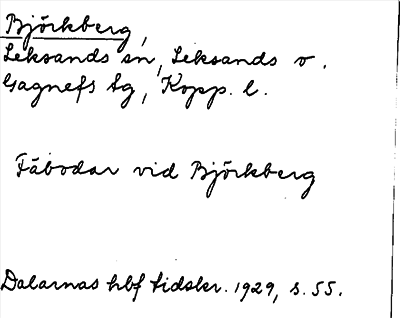 Björkberg,
Leksands sn, Leksands o.
Gagnefs tg, Kopp. l.
Fäbodar vid Björkberg
Dalarnas hbf tidskr. 1929, s. 55.